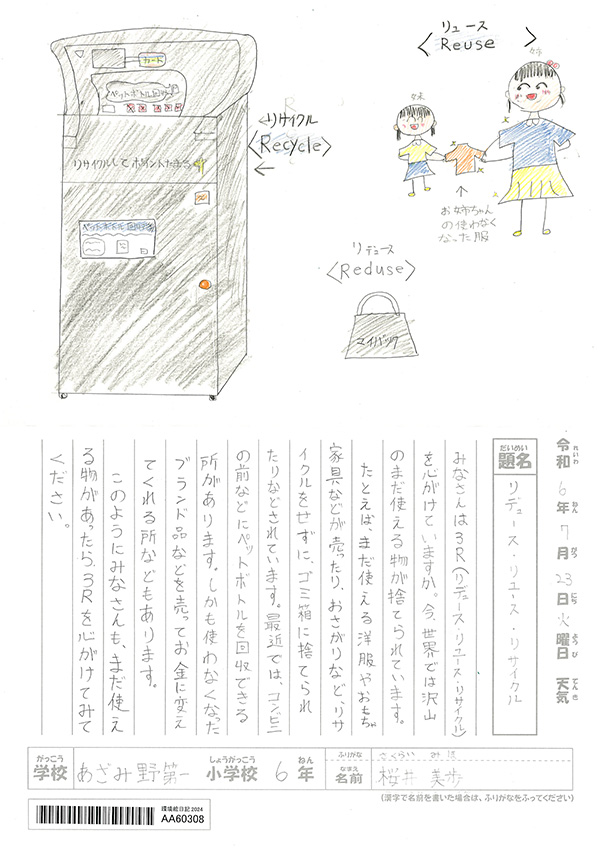 カード
ペットボトル回収
リサイクルしてポイントたまる
ペットボトル回収
リサイクル
<Recycle>
リュース
<Reuse>
姉
妹
お姉ちゃん
の使わなく
なった服
リデュース
<Reduse>
マイバック
令和6年7月23日火曜日 天気
れいわ ねん がつ にち ようび てんき
だいめい
題名
リデュース・リユース・リサイクル
みなさんは3R(リデュース・リユース・リサイクル)
を心がけていますか。今、世界では沢山
のまだ使える物が捨てられています。
たとえば、まだ使える洋服やおもちゃ
家具などが売ったり、おさがりなど、リサ
イクルをせずに、ゴミ箱に捨てられ
たりなどされています。最近では、コンビニ
の前などにペットボトルを回収できる
所があります。しかも使わなくなった
ブランド品などを売ってお金に変え
てくれる所などもあります。
このようにみなさんも、まだ使え
る物があったら、3Rを心がけてみて
ください。
がっこう しょうがっこう ねん
学校 あざみ野第一 小学校 6年
ふりがな さくらい みほ
なまえ
名前 桜井 美歩
(漢字で名前を書いた場合は、ふりがなをふってください)
環境絵日記2024
AA60308